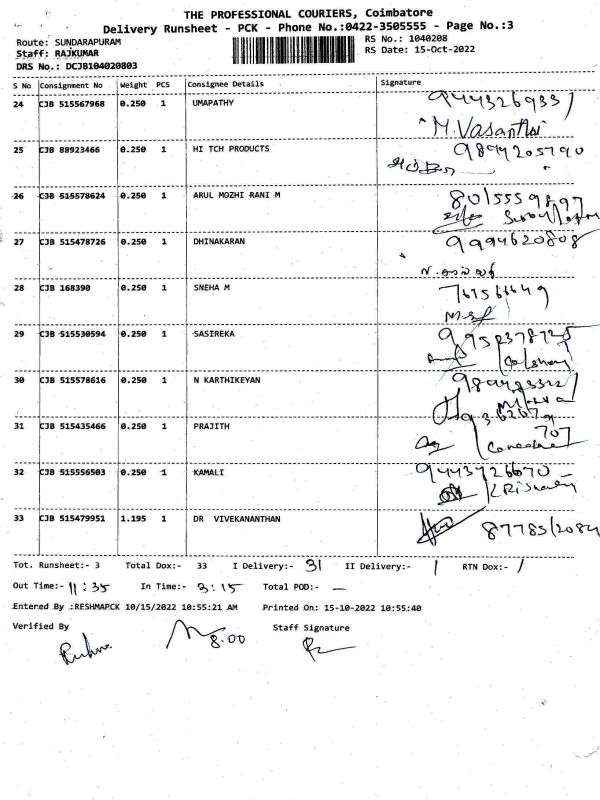 THE PROFESSIONAL COURIERS, Coimbatore
Delivery Runsheet - PCK - Phone No.:0422-3505555 - Page No.:3
Route: SUNDARAPURAM
RS No.: 1040208
Staff: RAJKUMAR
RS Date: 15-Oct-2022
DRS No.: DCJB104020803
S No Consignment No Weight PCS Consignee Details Signature
24 CJB 515567968 0.250 1 UMAPATHY 9444326933
M.Vasantha
25 CJB 88923466 0.250 1 HI TCH PRODUCTS 9894205790
26 CJB 515578624 0.250 1 ARUL MOZHI RANI M 8015559897
27 CJB 515478726 0.250 1 DHINAKARAN 9994620808
28 CJB 168390 0.250 1 SNEHA M
29 CJB 515530594 0.250 1 SASIREKA
30 CJB 515578616 0.250 1 N KARTHIKEYAN
31 CJB 515435466 0.250 1 PRAJITH
707
32 CJB 515556503 0.250 1 KAMALI 9443726670
33 CJB 515479951 1.195 1 DR VIVEKANANTHAN
Tot. Runsheet:- 3 Total Dox:- 33 I Delivery:- 31 II Delivery:- 1 RTN Dox:- 1
Out Time:- 11:35 In Time:- 3:15 Total POD:- —
Entered By :RESHMAPCK 10/15/2022 10:55:21 AM Printed On: 15-10-2022 10:55:40
Verified By 8.00 Staff Signature